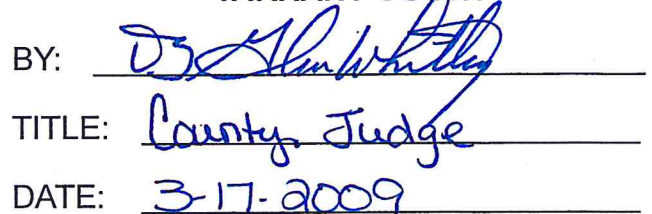 BY: Glen Whitley
TITLE: County Judge
DATE: 3-17-2009